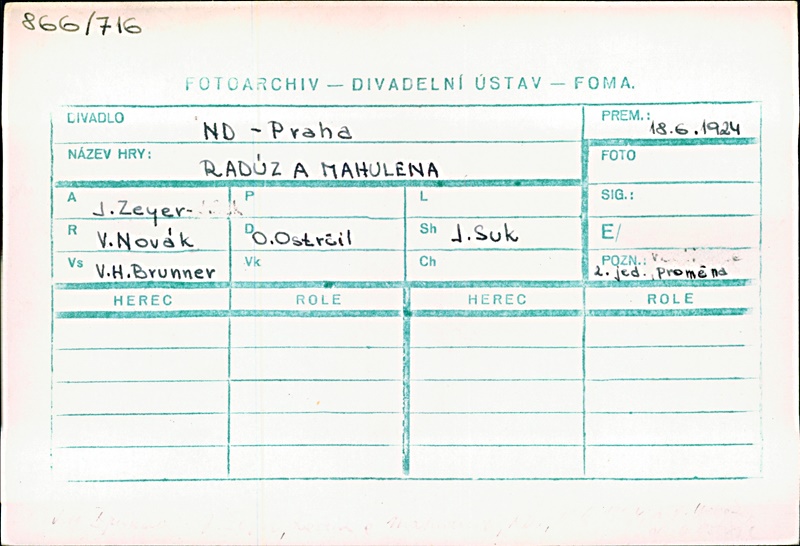 866/716
FOTOARCHIV — DIVADELNÍ ÚSTAV — FOMA.
DIVADLO ND - Praha PREM.: 18.6.1924
NÁZEV HRY: RADÚZ A MAHULENA FOTO
A J.Zeyer- P L SIG.:
R V.Novák D O.Ostrčil Sh J.Suk E/
Vs V.H.Brunner Vk Ch POZN.:
2. jed., proměna
HEREC ROLE HEREC ROLE